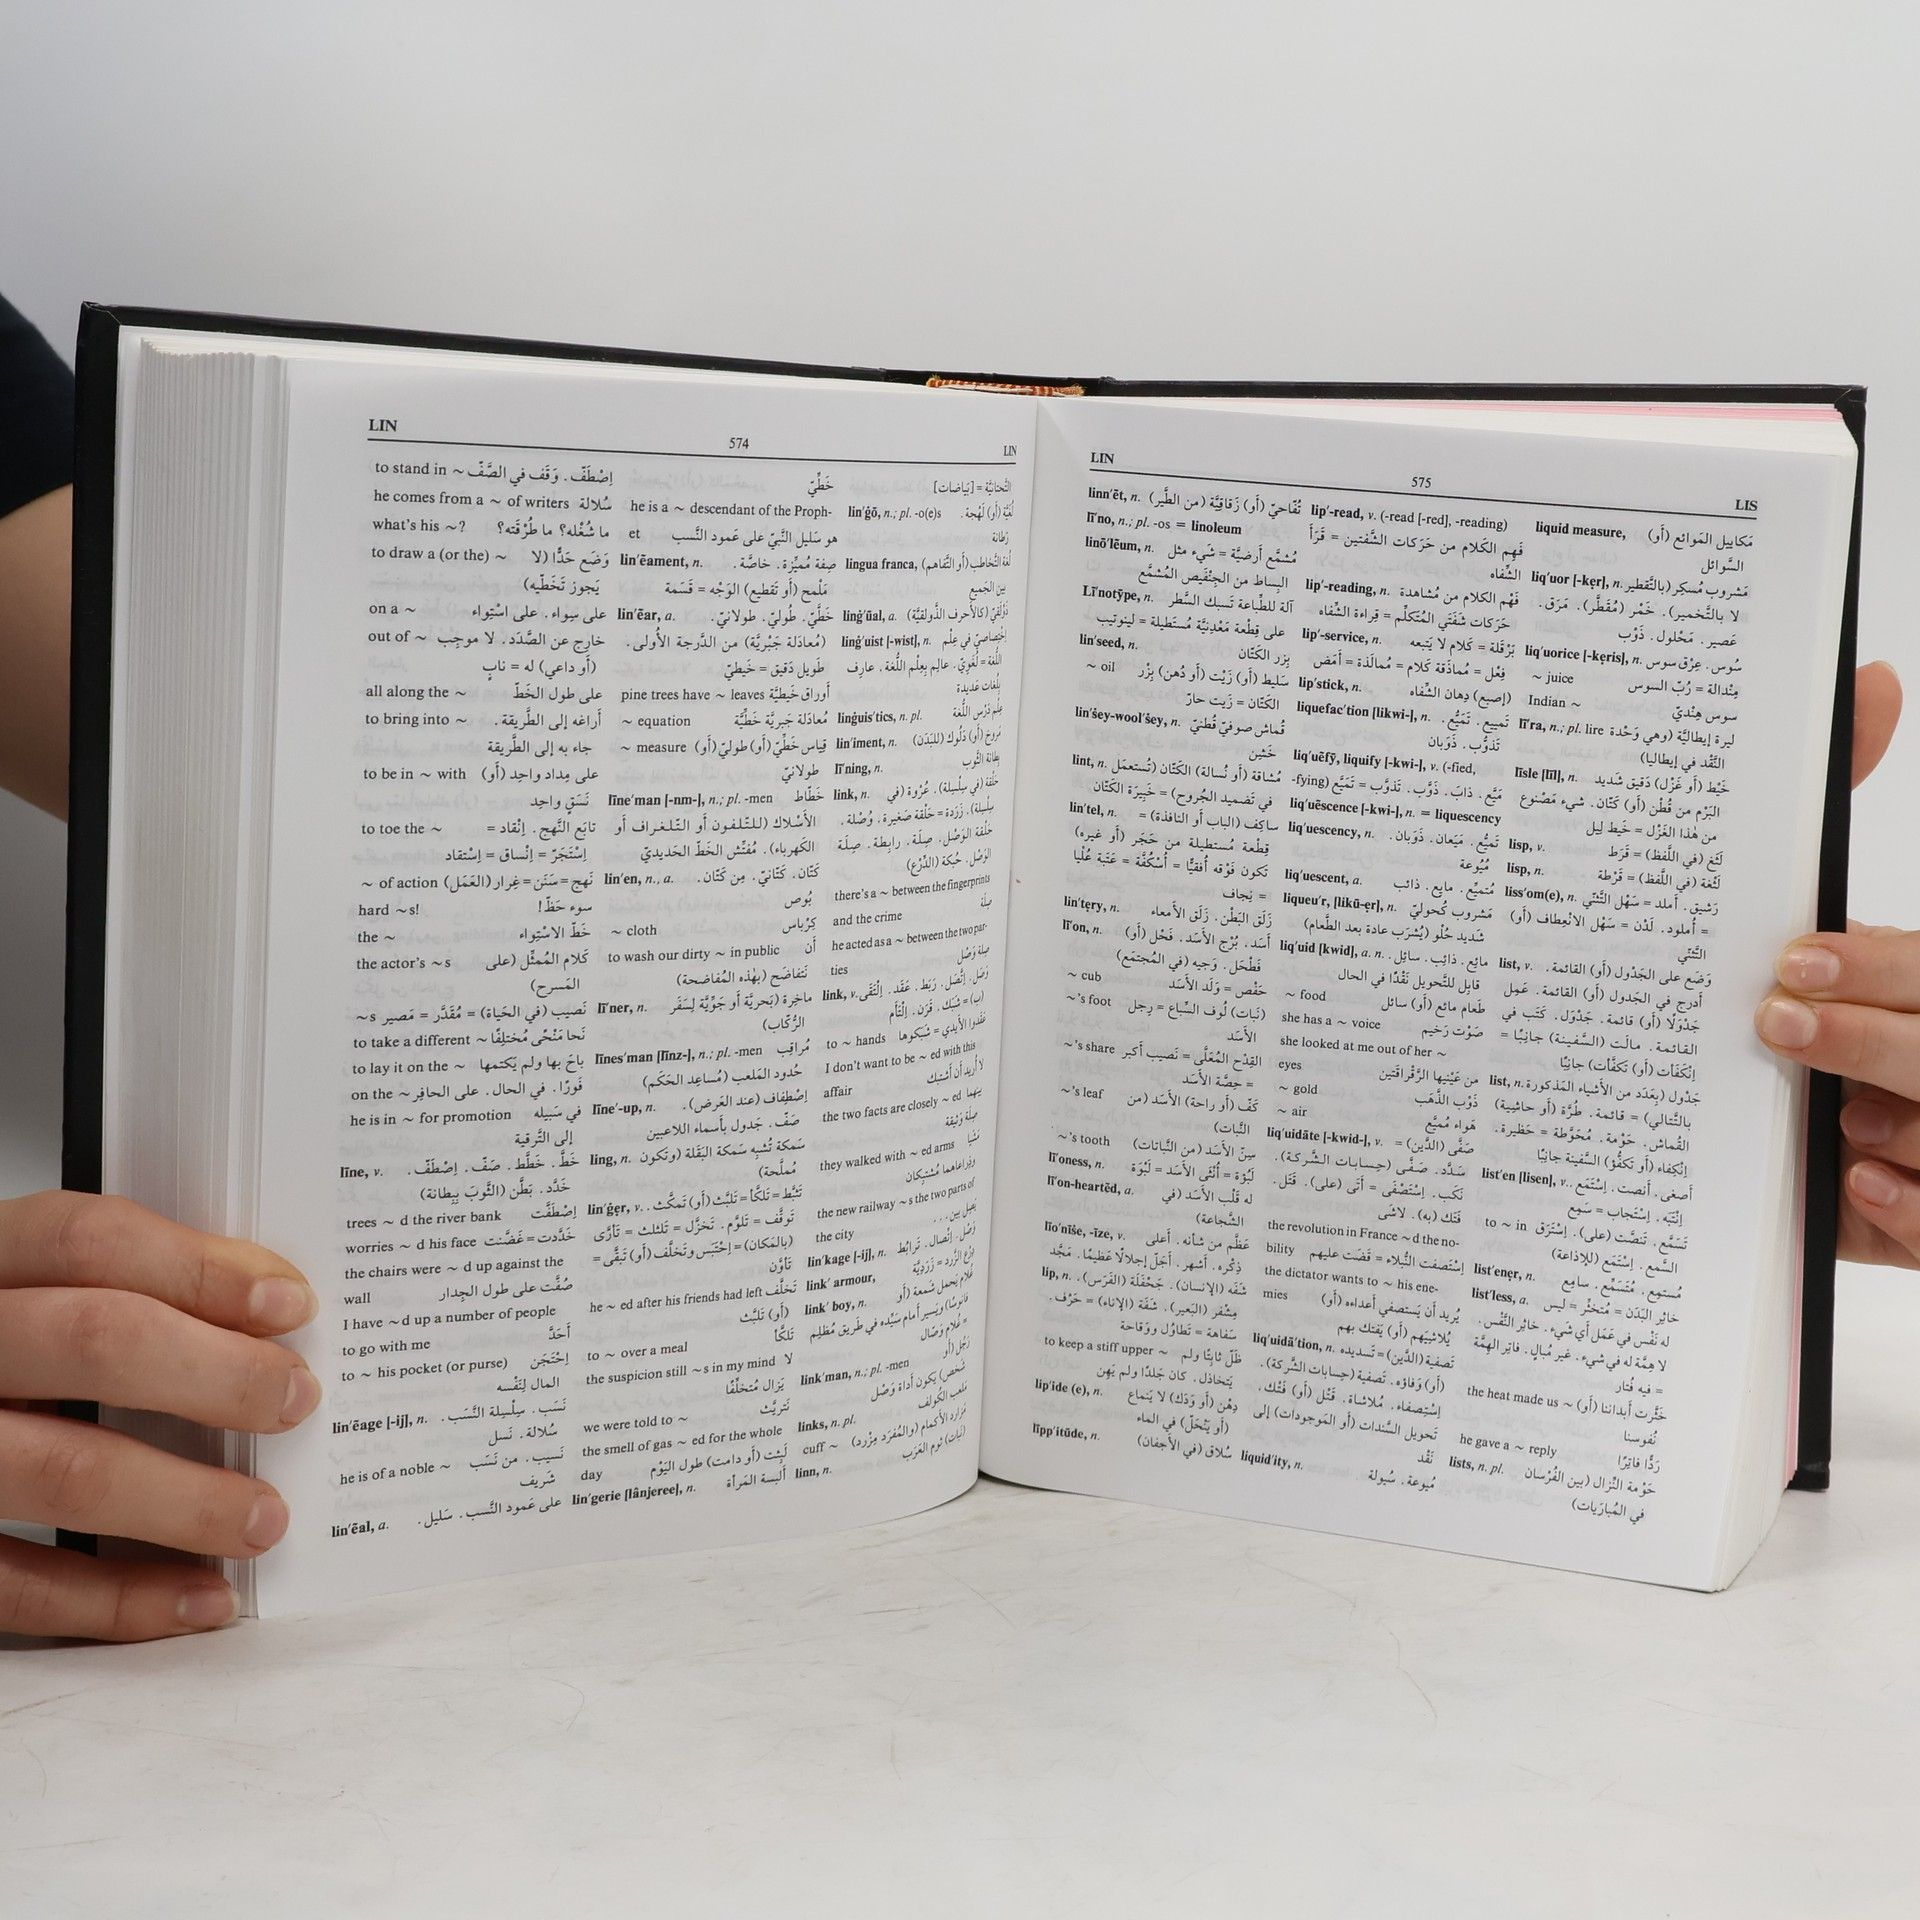 LIN
574
LIN
to stand in ~ اِصْطَفّ. وَقَف في الصَّفّ
he comes from a ~ of writers سُلالة
what's his ~? ما شُغْله؟ ما طُرْقَته؟
to draw a (or the) ~ وَضَع حَدًّا (لا
يَجوز تَخَطّيه)
on a ~ على سِواء. على اسْتِواء
out of ~ خارِج عن الصَّدَد. لا موجِب
(أو داعي) له = نابٍ
all along the ~ على طول الخَطّ
to bring into ~ أَراغه إلى الطَّريقة.
جاء به إلى الطَّريقة
to be in ~ with على مِداد واحِد (أو)
نَسَقٍ واحِد
to toe the ~ تابَع النَّهج. اِنْقاد =
اِسْتَجَرّ = اِنْساق = اِسْتقاد
~ of action نَهج = سَنَن = غِرار (العَمَل)
hard ~s! سوء حَظّ!
the ~ خَطّ الاسْتِواء
the actor's ~s كَلام المُمثِّل (على
المَسرح)
~s نَصيب (في الحَياة) = مُقَدَّر = مَصير
to take a different ~ نَحا مَنْحًى مُختلِفًا
to lay it on the ~ باحَ بها ولم يَكتمها
on the ~ فَورًا. في الحال. على الحافِر
he is in ~ for promotion في سَبيله
إلى التَّرقية
līne, v. خَطّ. خَطَّط. صَفّ. اِصْطَفّ.
خَدَّد. بَطَّن (الثَّوبَ بِبِطانة)
trees ~ d the river bank اِصْطَفَّت
worries ~ d his face خَدَّدت = غَضَّنت
the chairs were ~ d up against the
wall صُفَّت على طول الجِدار
I have ~ d up a number of people
to go with me أَحَدَّ
to ~ his pocket (or purse) اِحْتَجَن
المال لِنَفْسه
lin'ēage [-ij], n. نَسَب. سِلْسِيلة النَّسَب.
سُلالة. نَسل
he is of a noble ~ نَسيب. من نَسَب
شَريف
lin'ēal, a. على عَمود النَّسب. سَليل.
خَطِّيّ
he is a ~ descendant of the Proph-
et هو سَليل النَّبيّ على عَمود النَّسب
lin'ēament, n. صِفة مُمَيِّزة. خاصَّة.
مَلْمح (أو تَقطيع) الوَجْه = قَسَمة
lin'ēar, a. خَطِّيّ. طُوليّ. طولانيّ.
(مُعادَلة جَبْريَّة) من الدَّرجة الأُولى.
طَويل دَقيق = خَيطيّ
pine trees have ~ leaves أَوراق خَيطيَّة
~ equation مُعادَلة جَبريَّة خَطِّيَّة
~ measure قِياس خَطِّيّ (أو) طوليّ (أو)
طولانيّ
līne'man [-nm-], n.; pl. -men خَطّاط
الأَسْلاك (للتلفون أو التلغراف أو
الكهرباء). مُفتِّش الخَطّ الحَديديّ
lin'en, n., a. كَتّان. كَتّانيّ. مِن كَتّان.
بُوص
~ cloth كِرْباس
to wash our dirty ~ in public أَن
نَتَفاضَح (بهٰذه المُفاضحة)
lī'ner, n. ماخِرة (بَحريَّة أو جَوِّيَّة لِسَفَر
الرُّكّاب)
līnes'man [līnz-], n.; pl. -men مُراقِب
حُدود المَلعب (مُساعِد الحَكَم)
līne'-up, n. اِصْطِفاف (عند العَرض).
صَفّ. جَدول بأَسماء اللاعبين
ling, n. سَمكة تُشبِه سَمكة البَقَلة (وتَكون
مُملَّحة)
lin'ġer, v. تَثَبَّط = تَلَكَّأ = تَلَبَّث (أو) تَمكَّث.
تَوقَّف = تَلَوَّم. تَخزَّل = تَلَثلث = تَأَرَّى
(بالمَكان) = اِحْتَبَس وتَخلَّف (أو) تَبقَّى =
تَأَوَّن
he ~ ed after his friends had left تَخلَّف
(أو) تَلَبَّث
to ~ over a meal تَلَكَّأ
the suspicion still ~s in my mind لا
يَزال مُتخلِّفًا
we were told to ~ نَتَريَّث
the smell of gas ~ ed for the whole
day لَبِثت (أو دامت) طول اليَوْم
lin'gerie [lânjeree], n. أَلبسة المَرأة
التَّحتانيَّة = [بَياضات]
lin'ġō, n.; pl. -o(e)s لُغيَّة (أو) لَهْجة.
رَطانة
lingua franca, لُغة التَّخاطب (أو التَّفاهم)
بَين الجَميع
linġ'ūal, a. ذَوْلَقيّ (كالأَحرف الذَّولقيَّة)
linġ'uist [-wist], n. اِخْتِصاصيّ في عِلْم
اللُّغة = لُغَويّ. عالِم بِعِلْم اللُّغة. عارِف
بلُغات عَديدة
linġuis'tics, n. pl. عِلْم دَرْس اللُّغة
lin'iment, n. مَروخ (أو) دَلوك (للبَدَن)
lī'ning, n. بِطانة الثَّوب
link, n. حَلْقة (في سِلْسِلة). عُرْوة (في
سِلْسِلة). زَرَدة = حَلْقة صَغيرة. وُصْلة.
حَلْقة الوَصْل. صِلَة. رابِطة. صِلَة
الوَصْل. حُبْكة (الدِّرْع)
there's a ~ between the fingerprints
and the crime صِلَة
he acted as a ~ between the two par-
ties صِلة وَصْل
link, v. وَصَل. اِتَّصل. رَبَط. عَقَد. اِلْتَقَى
(بـ) = شَبَك. قَرَن. اِلْتَأَم
to ~ hands عَقَدوا الأَيدي = شَبَكوها
I don't want to be ~ ed with this
affair لا أُريد أن أَشْتبك
the two facts are closely ~ ed بَينهما
صِلة وَثيقة
they walked with ~ ed arms مَشَيا
وذِراعاهما مُشْتبكان
the new railway ~s the two parts of
the city يَصِل بين...
lin'kage [-ij], n. وَصْل. اِتِّصال. تَرابُط
link' armour, دِرْع الزَّرَد = زَرَديَّة
link' boy, n. غُلام يَحمِل شَمعة (أو
فانوسًا) ويَسير أمام سَيِّده في طَريق مُظلِم
= غُلام وَصّال
link'man, n.; pl. -men رَجُل (أو
شَخص) يَكون أداة وَصْل
links, n. pl. مَلعب الكُولف
cuff ~ مَزارد الأَكمام (والمُفرَد مِزْرد)
linn, n.
LIN
575
LIS
linn'ēt, n. تُفّاحيّ (أو) زَقاقيَّة (من الطَّير)
lī'no, n.; pl. -os = linoleum
linō'lēum, n. مُشمَّع أَرضيَّة = شَيء مثل
البِساط من الجِنْفيص المُشمَّع
Lī'notȳpe, n. آلة للطِّباعة تَسبك السَّطر
على قِطْعة مَعْدِنيَّة مُستَطيلة = لينوتيب
lin'seed, n. بِزر الكَتّان
~ oil سَليط (أو) زَيْت (أو دُهن) بِزْر
الكَتّان = زَيت حارّ
lin'sey-wool'sey, n. قُماش صوفيّ قُطنيّ
خَشِن
lint, n. مُشاقة (أو نُسالة) الكَتّان (تُستعمَل
في تَضميد الجُروح) = خَبيرَة الكَتّان
lin'tel, n. ساكِف (الباب أو النافذة) =
قِطعة مُستطيلة من حَجَر (أو غيره)
تَكون فَوْقه أُفقيًّا = أُسْكُفَّة = عَتَبة عُليا
= نِجاف
lin'tęry, n. زَلَق البَطْن. زَلَق الأَمعاء
lī'on, n. أَسَد. بُرْج الأَسَد. فَحْل (أو)
فَطْحَل. وَجيه (في المُجتمَع)
~ cub حَفْص = وَلَد الأَسَد
~'s foot (نَبات) لُوف السِّباع = رِجل
الأَسَد
~'s share القِدْح المُعَلَّى = نَصيب أَكبر
= حِصَّة الأَسَد
~'s leaf كَفّ (أو راحة) الأَسَد (من
النَّبات)
~'s tooth سِنّ الأَسَد (من النَّباتات)
lī'oness, n. لَبُؤة = أُنْثَى الأَسَد = لَبُوَة
lī'on-heartēd, a. له قَلْب الأَسَد (في
الشَّجاعة)
līo'nīse, -īze, v. عَظَّم من شأنه. أَعلى
ذِكْره. أَشهر. أَجَلّ إجلالًا عَظيمًا. مَجَّد
lip, n. شَفَة (الإنسان). جَحْفَلَة (الفَرَس).
مِشْفَر (البَعير). شَفَة (الإناء) = حَرْف.
سَفاهة = تَطاوُل ووَقاحة
to keep a stiff upper ~ ظَلّ ثابتًا ولم
يَتخاذل. كان جَلْدًا ولم يَهن
lip'ide (e), n. دِهْن (أو وَدَك) لا يَنماع
(أو يَنْحَلّ) في الماء
lipp'itūde, n. سُلاق (في الأَجفان)
lip'-read, v. (-read [-red], -reading)
فَهِم الكَلام من حَرَكات الشَّفَتين = قَرَأ
الشِّفاه
lip'-reading, n. فَهْم الكَلام من مُشاهدة
حَرَكات شَفَتَي المُتكلِّم = قِراءة الشِّفاه
lip'-service, n. بَرْقَلة = كَلام لا يَتبعه
فِعْل = مُماذَقة كَلام = مُمالَذة = أَمَض
lip'stick, n. (إصبع) دِهان الشِّفاه
liquefac'tion [likwi-], n. تَمييع. تَمَيُّع.
تَذَوُّب. ذَوَبان
liq'uēfȳ, liquify [-kwi-], v. (-fied,
-fying) مَيَّع. ذابَ. ذَوَّب. تَذوَّب = تَمَيَّع
liq'uēscence [-kwi-], n. = liquescency
liq'uescency, n. تَمَيُّع. مَيَعان. ذَوَبان.
مُيُوعة
liq'uescent, a. مُتميِّع. مايِع. ذائب
liqueu'r, [likū-ęr], n. مَشروب كُحوليّ
شَديد حُلُو (يُشْرَب عادة بعد الطَّعام)
liq'uid [kwid], a. n. مائِع. ذائِب. سائِل.
قابِل للتَّحويل نَقْدًا في الحال
~ food طَعام مائع (أو) سائل
she has a ~ voice صَوْت رَخيم
she looked at me out of her ~
eyes من عَيْنيها الرَّقْراقَتَين
~ gold ذَوْب الذَّهَب
~ air هَواء مُميَّع
liq'uidāte [-kwid-], v. صَفَّى (الدَّين) =
سَدَّد. صَفَّى (حِسابات الشَّركة).
نَكَب. اِسْتَصْفَى = أَتَى (على). قَتَل.
فَتَك (به). لاشَى
the revolution in France ~ d the no-
bility اِسْتَصفت النُّبلاء = قَضَت عليهم
the dictator wants to ~ his ene-
mies يُريد أن يَستصفي أَعداءه (أو)
يُلاشيَهم (أو) يَفتك بهم
liq'uidā'tion, n. تَصفية (الدَّين) = تَسديده
(أو) وَفاؤه. تَصفية (حِسابات الشَّركة).
اِسْتِصفاء. مُلاشاة. قَتْل (أو) فَتْك.
تَحويل السَّندات (أو المَوجودات) إلى
نَقْد
liquid'ity, n. مُيوعة. سُيولة
liquid measure, مَكاييل المَوائع (أو)
السَّوائل
liq'uor [-kęr], n. مَشروب مُسكِر (بالتَّقطير
لا بالتَّخمير). خَمْر (مُقَطَّر). مَرَق.
عَصير. مَحْلول. ذَوْب
liq'uorice [-kęris], n. سُوس. عِرْق سوس
~ juice مِنْدالة = رُبّ السوس
Indian ~ سوس هِنْديّ
lī'ra, n.; pl. lire ليرة إيطاليَّة (وهي وَحْدة
النَّقْد في إيطاليا)
līsle [līl], n. خَيْط (أو غَزْل) دَقيق شَديد
البَرْم من قُطْن (أو) كَتّان. شَيء مَصْنوع
من هٰذا الغَزْل = خَيط لِيل
lisp, v. لَثَغ (في اللَّفظ) = قَرَط
lisp, n. لَثْغة (في اللَّفظ) = قَرْطة
liss'om(e), n. رَشيق. أَملد = سَهْل التَّثَنّي
= أُملود. لَدْن = سَهْل الانْعِطاف (أو)
التَّثَنّي
list, v. وَضَع على الجَدْول (أو) القائمة.
أَدرج في الجَدْول (أو) القائمة. عَمِل
جَدْوَلًا (أو) قائمة. جَدْوَل. كَتَب في
القائمة. مالَت (السَّفينة) جانِبًا =
اِنْكَفَأَت (أو) تَكَفَّأَت) جانِبًا
list, n. جَدْول (بِعَدَد من الأَشياء المَذكورة
بالتَّتالي) = قائمة. طُرَّة (أو حاشية)
القُماش. حَوْمة. مُحَوَّطة = حَظيرة.
اِنْكِفاء (أو تَكَفُّؤ) السَّفينة جانِبًا
list'en [lisen], v. أَصغى. أَنصت. اِسْتَمَع.
اِنْتَبَه. اِسْتَجاب = سَمِع
to ~ in تَسَمَّع. تَنصَّت (على). اِسْتَرَق
السَّمع. اِسْتَمَع (للإذاعة)
list'enęr, n. مُستمِع. مُتَسَمِّع. سامِع
list'less, a. خائِر البَدَن = مُتخثِّر = ليس
له نَفْس في عَمَل أي شَيء. خائِر النَّفْس.
لا هِمَّة له في شيء. غير مُبالٍ. فاتِر الهِمَّة
= فيه فُتار
the heat made us ~ خَثَّرت أَبداننا (أو)
نُفوسنا
he gave a ~ reply رَدًّا فاتِرًا
lists, n. pl. حَوْمة النِّزال (بين الفُرْسان
في المُبارَيات)